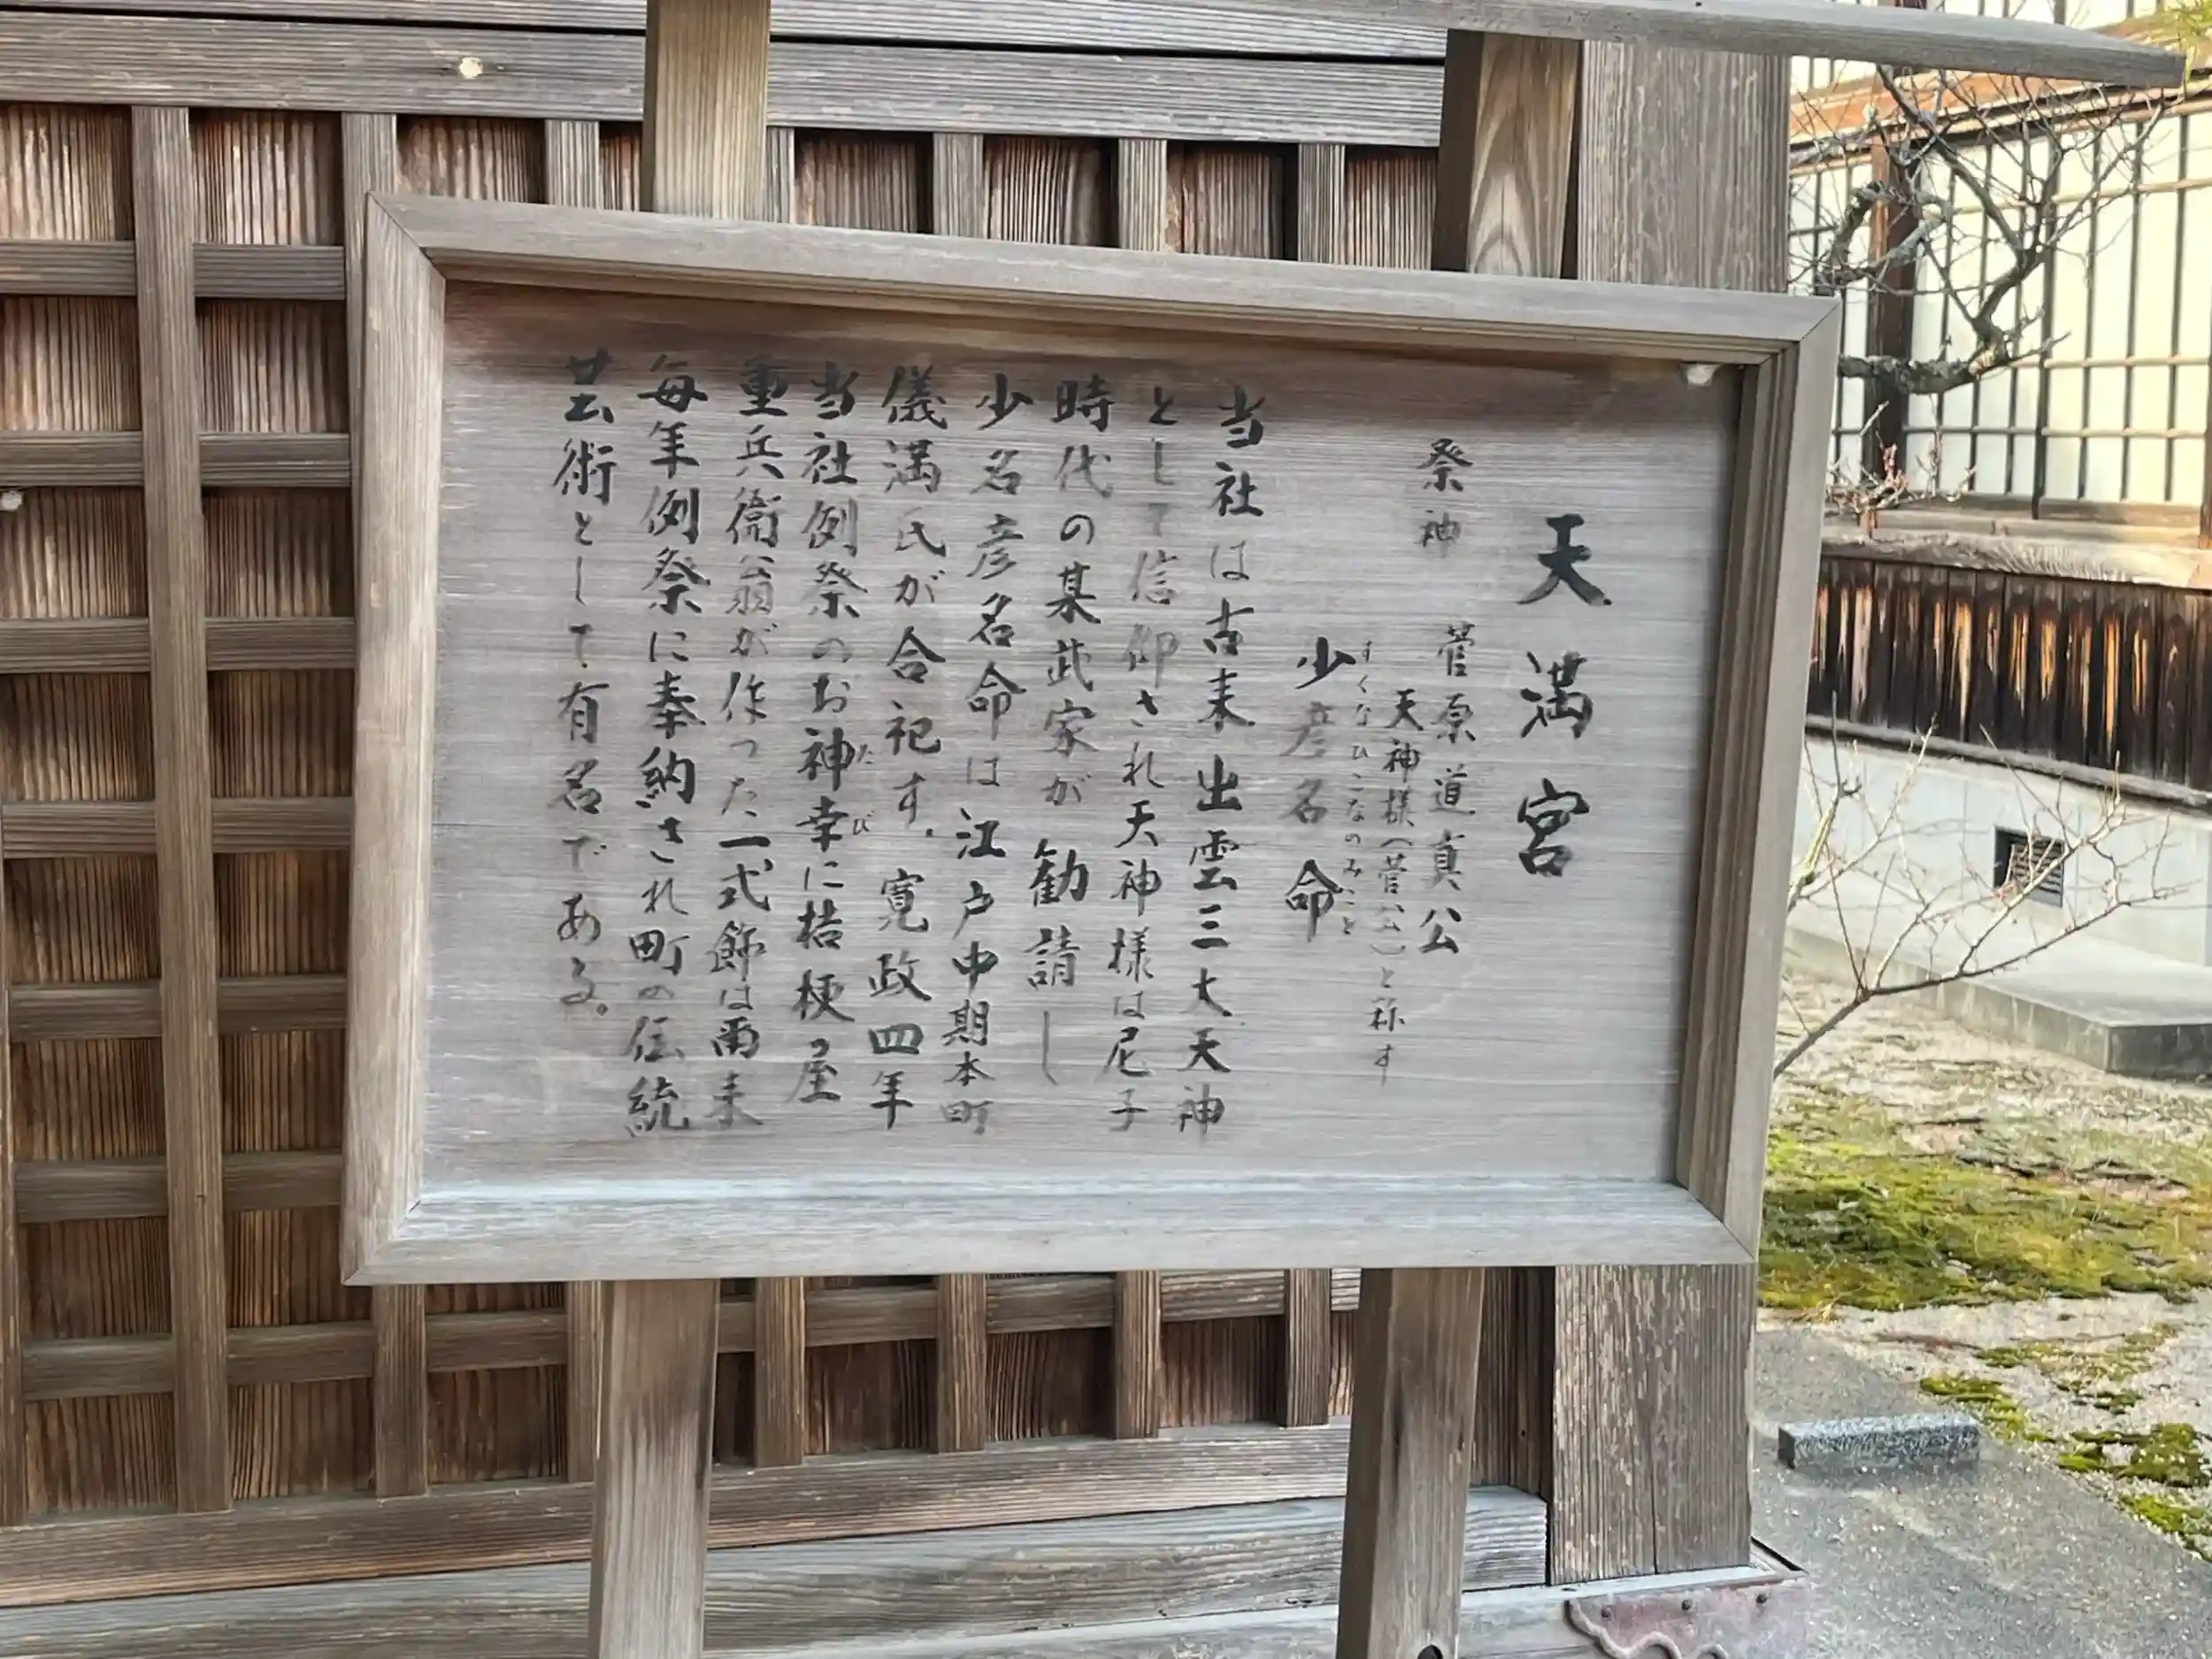 天満宮
祭神 菅原道真公
天神様（菅公）と称す
すくなひこなのみこと
少彦名命
当社は古来出雲三大天神
として信仰され天神様は尼子
時代の某武家が勧請し
少名彦名命は江戸中期本町
儀満氏が合祀す。寛政四年
当社例祭のお神幸に桔梗屋
たび
重兵衛翁が作った一式飾は爾来
毎年例祭に奉納され町の伝統
芸術として有名である。